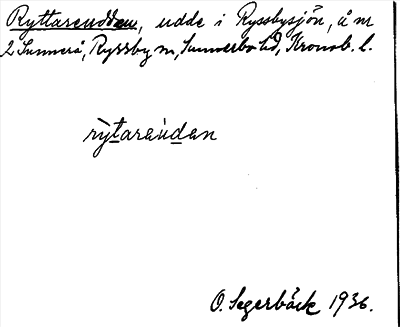 Ryttareudden, udde i Ryssbysjön, å nr
2 Sunnerå, Ryssby sn, Sunnerbo hd, Kronob. l.
rỳtareùdan
O. Segerbäck 1936.